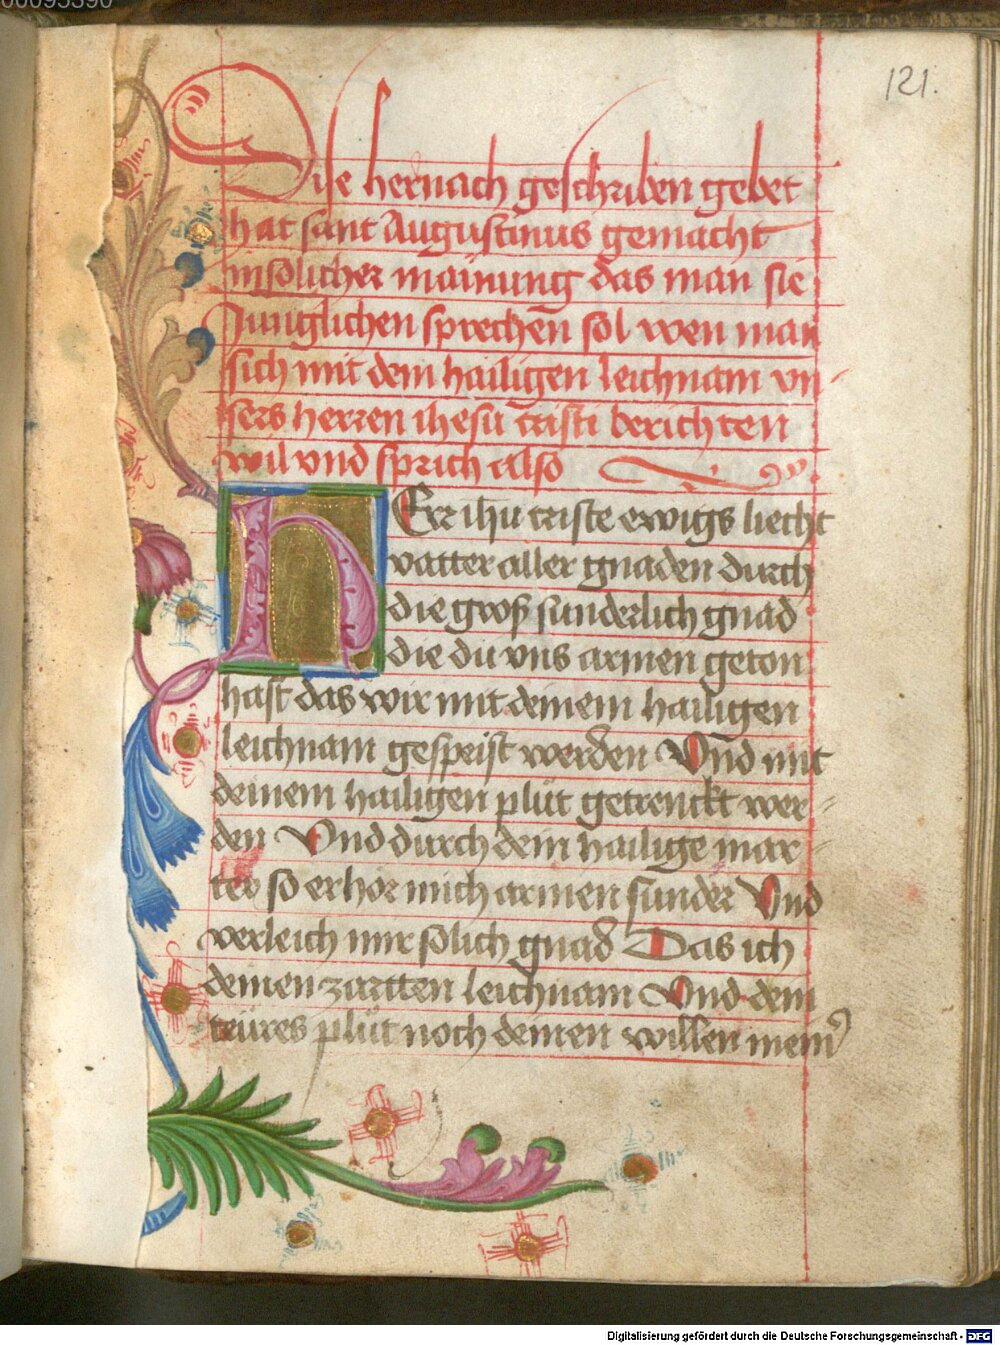 00095390
121.
Dise hernach geschriben gebet
hat sant Augustinus gemacht
in solicher mainung das man sie
Junglichen sprechen sol wen man
sich mit dem hailigen leichnam vn-
sers herren ihesu cristi berichten
wil vnd sprich also
HErr ihu criste ewigs liecht
vatter aller gnaden durch
die groß sunderlich gnad
die du vns armen geton
hast das wir mit deinem hailigen
leichnam gespeist werden Vnd mit
deinem hailigen plut getrenckt wer-
den Vnd durch dein hailige mar-
ter so erhor mich armen sunder Vnd
verleich mir solich gnad Das ich
deinen zartten leichnam Vnd dein
teures plut noch deinen willen mein
Digitalisierung gefördert durch die Deutsche Forschungsgemeinschaft - DFG